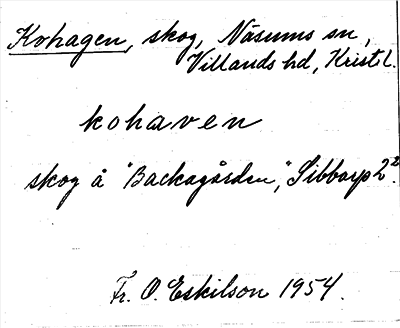 Kohagen, skog, Näsums sn,
Villands hd, Krist l.
kohaven
skog å "Backagården", Sibbarp 2².
Fr. O. Eskilson 1954.